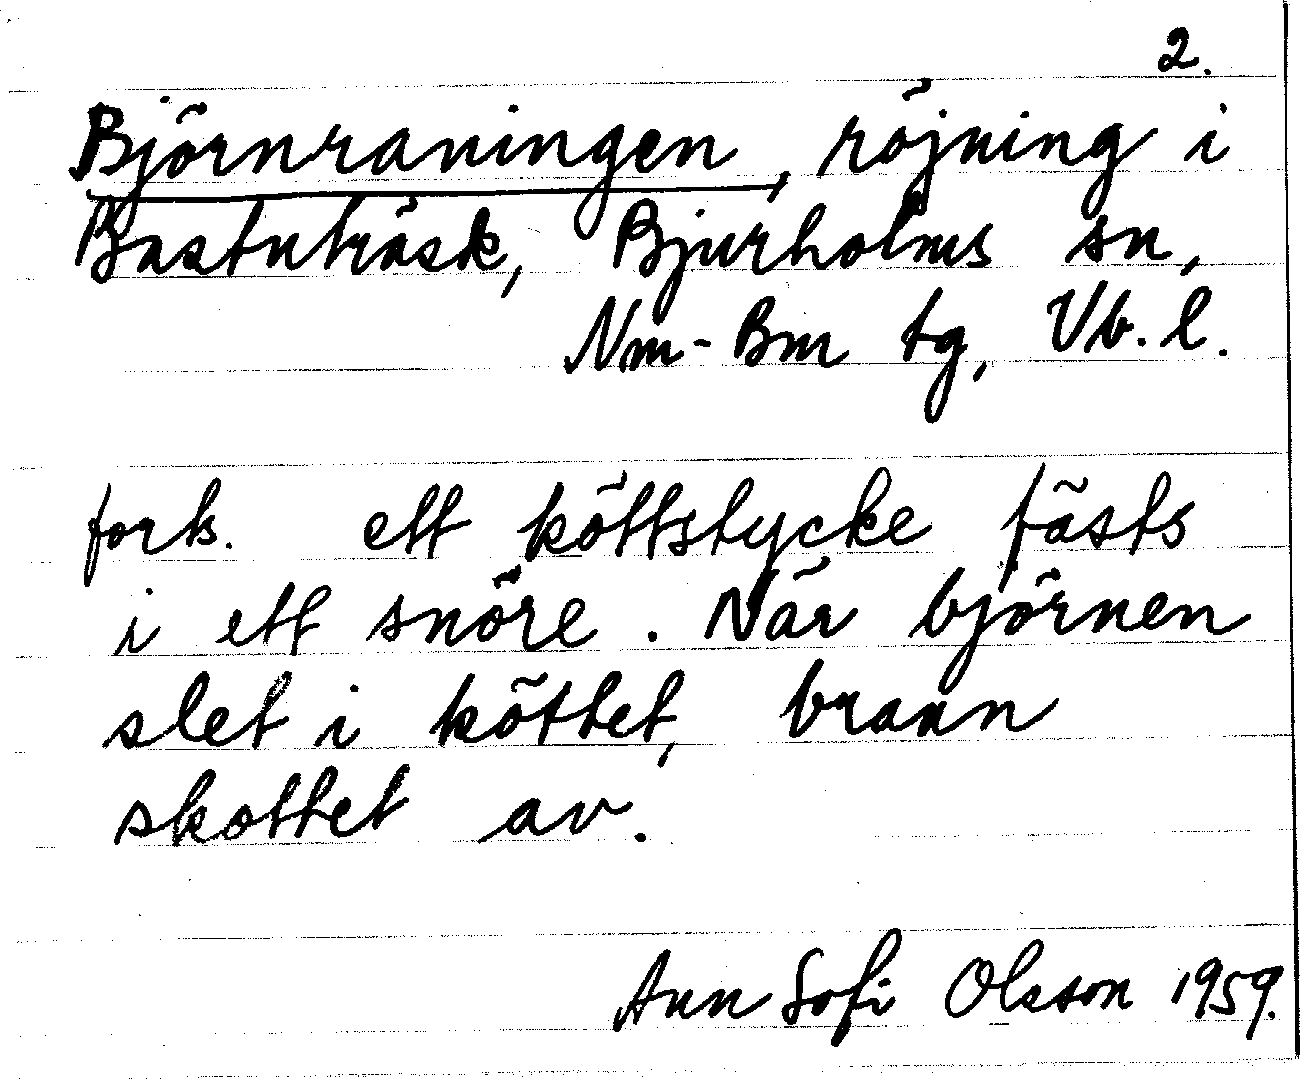 2.
Björnraningen, röjning i
Bastuträsk, Bjurholms sn,
Nm-Bm tg, Vb. l.
forts. ett köttstycke fästs
i ett snöre. När björnen
slet i köttet, brann
skottet av.
Ann Sofi Olsson 1959.